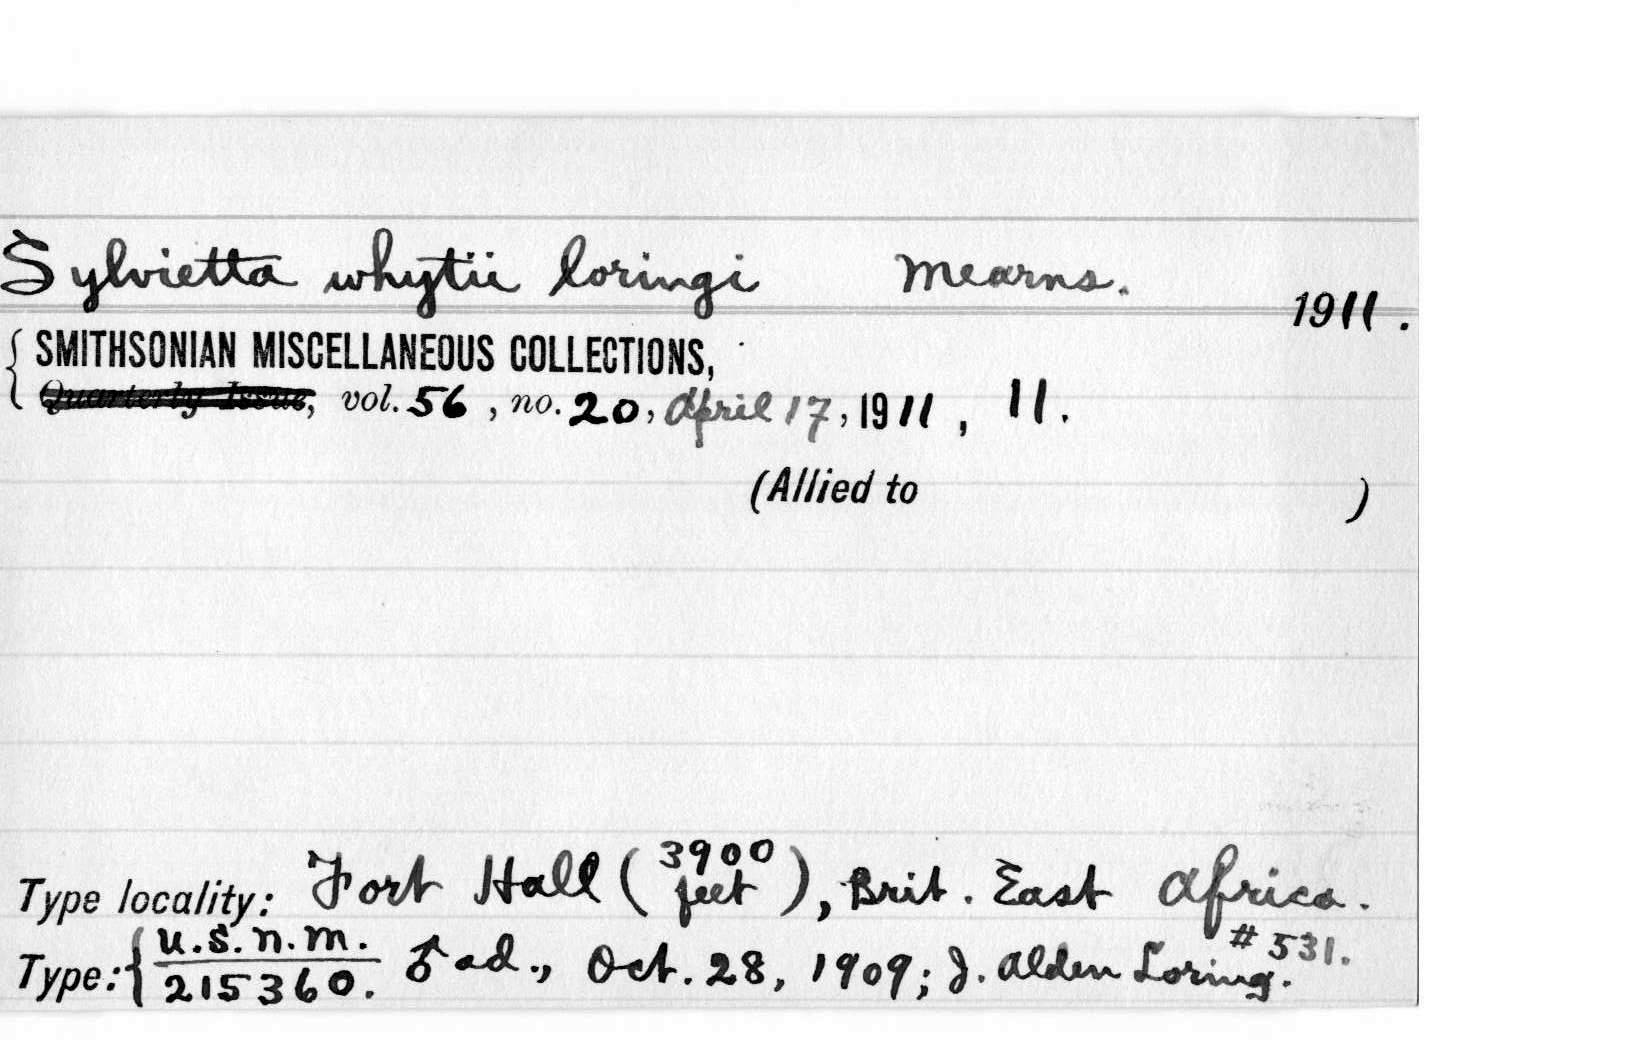 Sylvietta whytii loringi Mearns.
1911.
SMITHSONIAN MISCELLANEOUS COLLECTIONS,
Quarterly Issue, vol. 56, no. 20, April 17, 1911, 11.
(Allied to )
Type locality: Fort Hall (3900 feet), Brit. East Africa.
Type: { U.S.N.M. 215360. ♂ ad., Oct. 28, 1909; J. Alden Loring. #531.